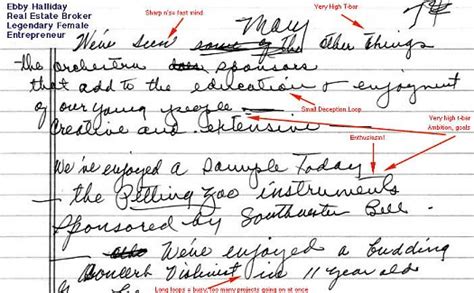 Ebby Halliday
Real Estate Broker
Legendary Female
Entrepreneur
Sharp n'ss fast mind
Very High T-bar
Many
We've seen some of the other things
the orchestra does sponsors
that add to the education & enjoyment
of our young people —
Small Deception Loop
Very high t-bar
Ambition, goals
Creative and extensive
Enthusiasm!
We've enjoyed a sample today
– the Petting Zoo instruments
sponsored by Southwestern Bell.
We've enjoyed a budding
Concert Violinist in 11 year old
Long loops a busy, too many projects going on at once